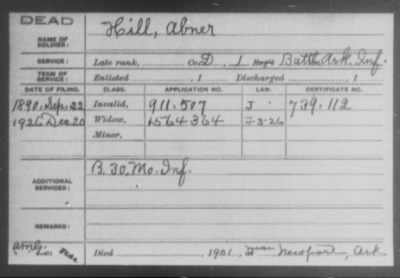 DEAD
NAME OF SOLDIER: Hill, Abner
SERVICE: Late rank, Co. D, 1 Reg't Batt'n Ark. Inf.
TERM OF SERVICE: Enlisted , 1 Discharged , 1
DATE OF FILING. CLASS. APPLICATION NO. LAW. CERTIFICATE NO.
1890. Sep. 22 Invalid, 911.507 J 739.112
1926 Dec 20 Widow, 1564364 J-3-26
Minor,
ADDITIONAL SERVICES: B. 30, Mo. Inf.
REMARKS:
Died , 1901, near Newport, Ark